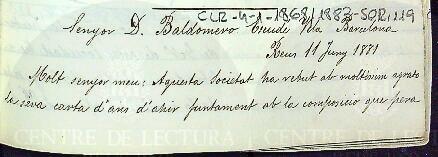 CLR-4-1-1868/1883-SOR,119
Senyor D. Baldomero Barcelona
Reus 11 Juny 1881
Molt senyor meu: Aquesta societat ha rebut ab moltissim agrado
la seva carta d'ans d'ahir juntament ab la composició que pera
CENTRE DE LECTURA CENTRE DE LECTURA